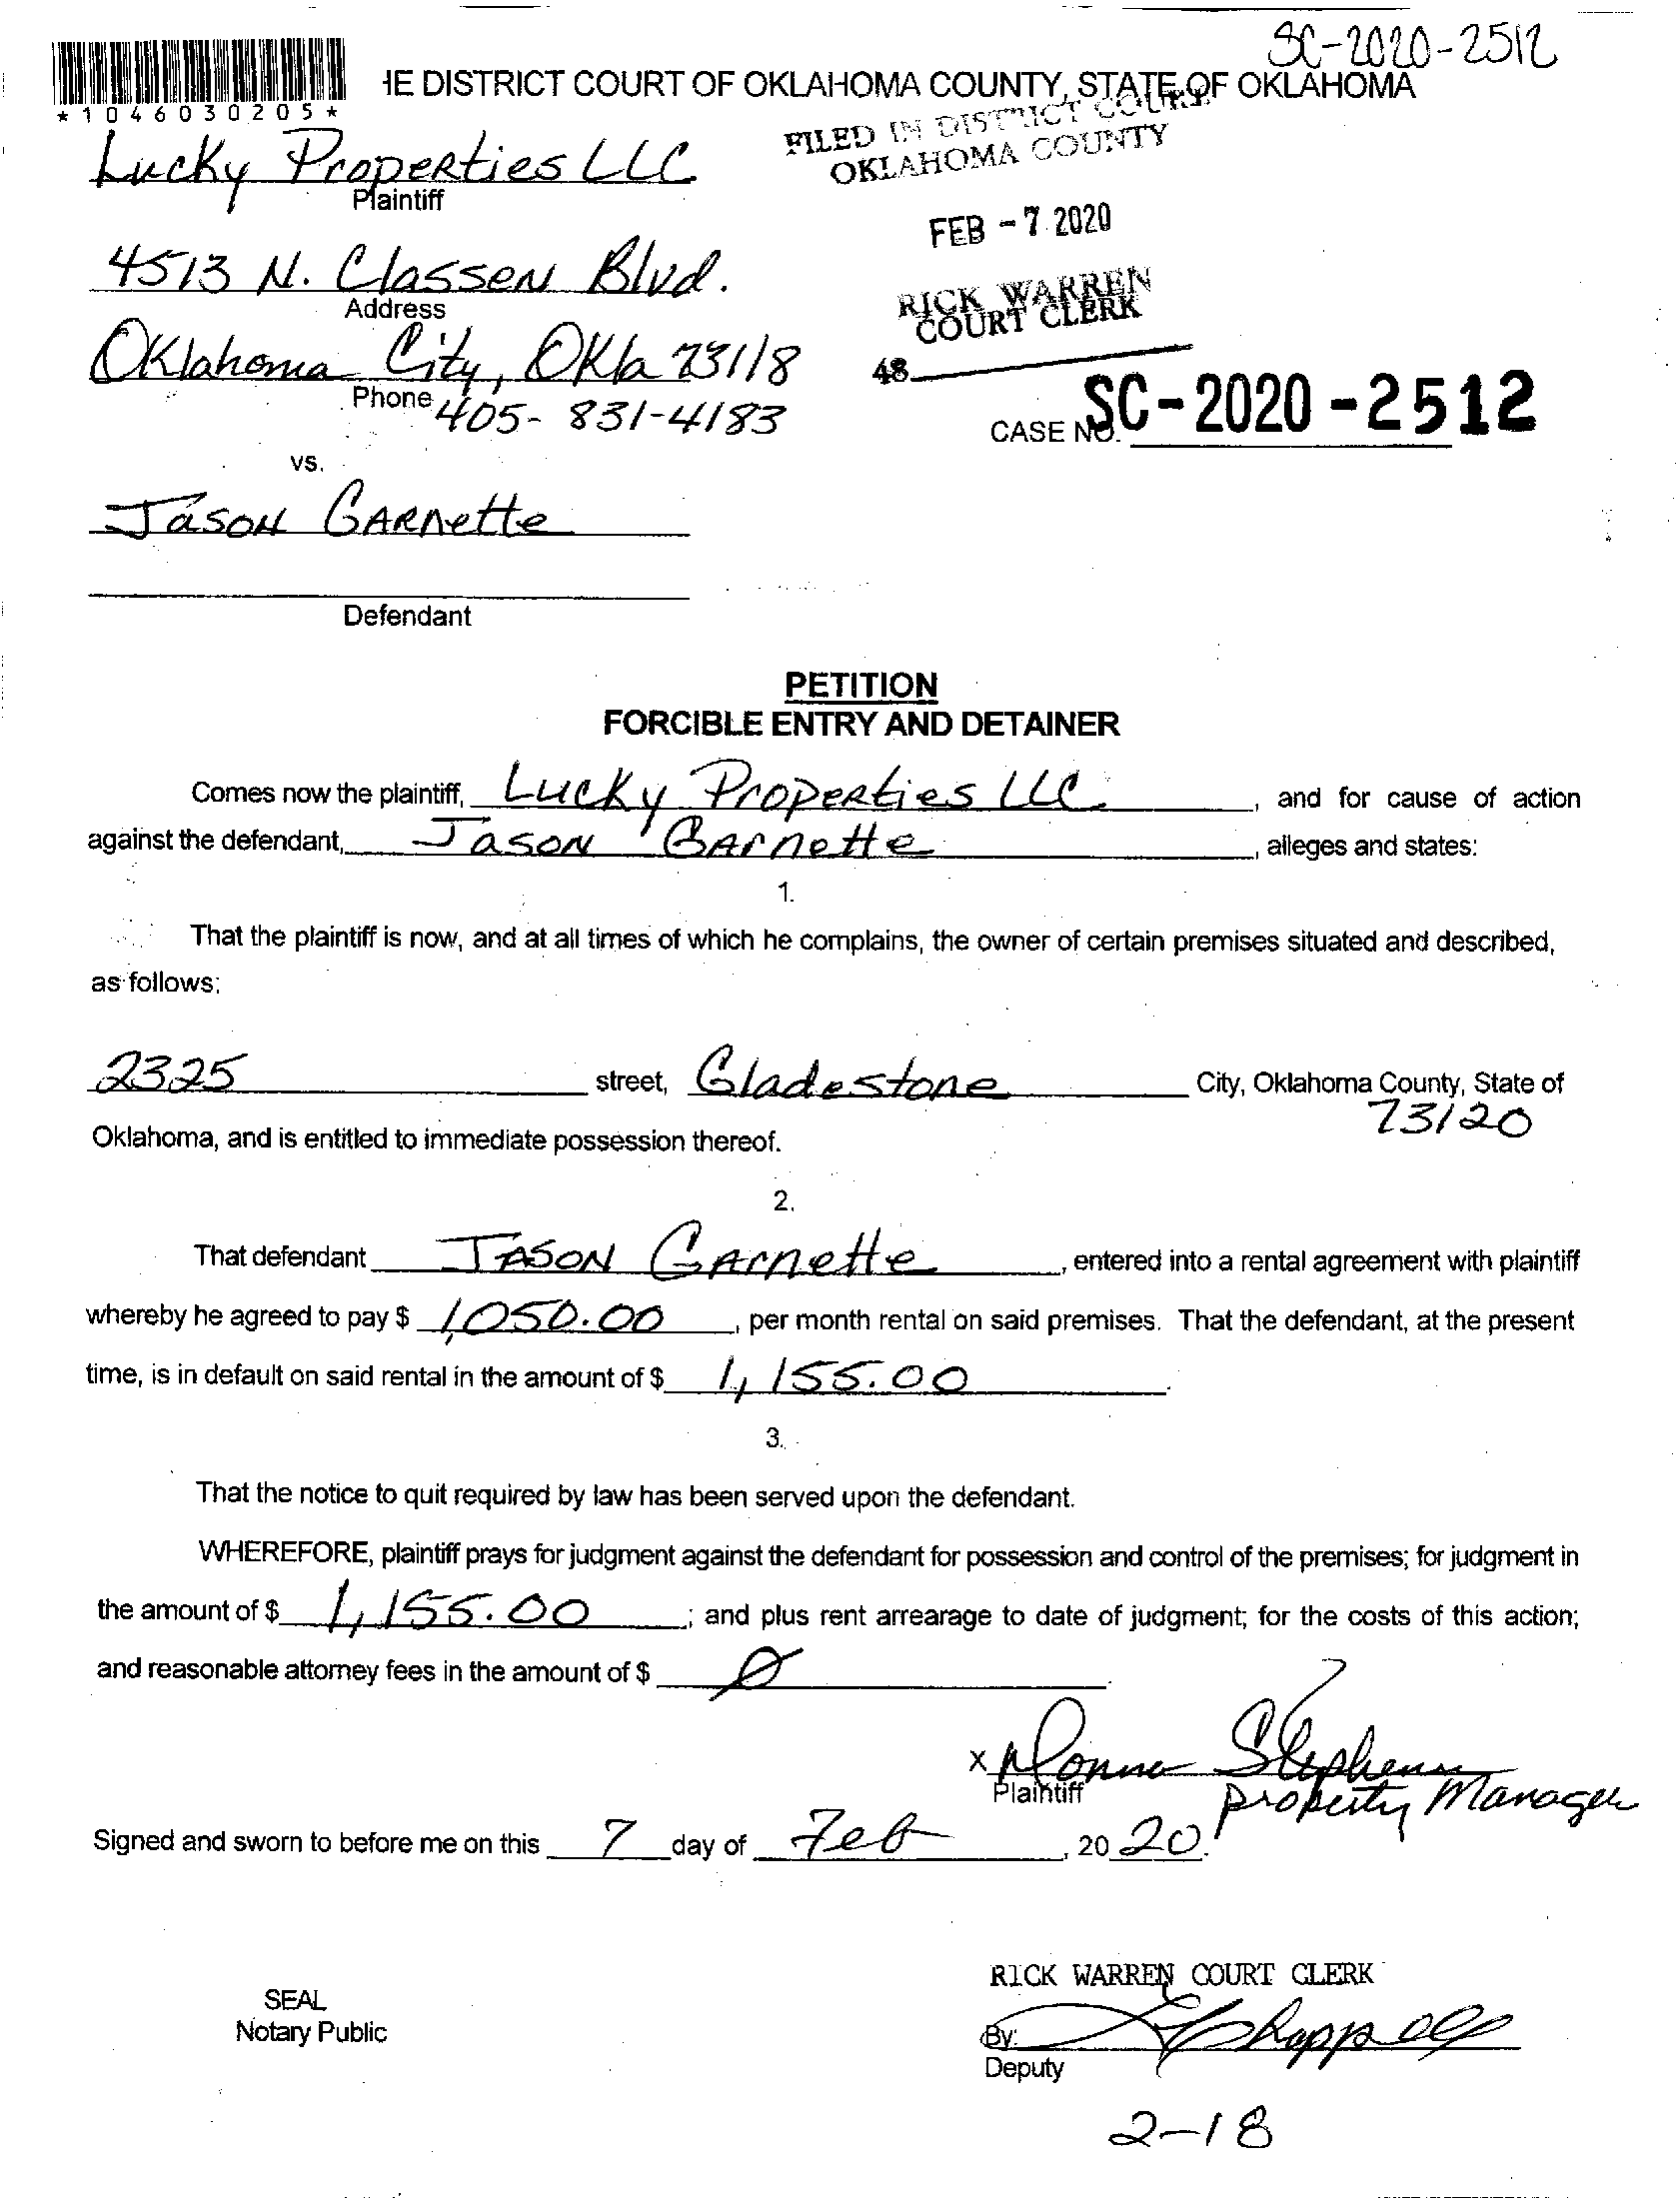 SC-2020-2512
HE DISTRICT COURT OF OKLAHOMA COUNTY, STATE OF OKLAHOMA
*1046030205*
FILED IN DISTRICT COURT
OKLAHOMA COUNTY
Lucky Properties LLC
Plaintiff
FEB -7 2020
4513 N. Classen Blvd.
Address
RICK WARREN
COURT CLERK
Oklahoma City, Okla 73118
48
Phone 405-831-4183
CASE NO. SC-2020-2512
vs.
Jason Garnette
Defendant
PETITION
FORCIBLE ENTRY AND DETAINER
Comes now the plaintiff, Lucky Properties LLC, and for cause of action
against the defendant, Jason Garnette, alleges and states:
1.
That the plaintiff is now, and at all times of which he complains, the owner of certain premises situated and described,
as follows:
2325 street, Gladestone City, Oklahoma County, State of
73120
Oklahoma, and is entitled to immediate possession thereof.
2.
That defendant Jason Garnette, entered into a rental agreement with plaintiff
whereby he agreed to pay $ 1,050.00, per month rental on said premises. That the defendant, at the present
time, is in default on said rental in the amount of $ 1,155.00.
3.
That the notice to quit required by law has been served upon the defendant.
WHEREFORE, plaintiff prays for judgment against the defendant for possession and control of the premises; for judgment in
the amount of $ 1,155.00; and plus rent arrearage to date of judgment; for the costs of this action;
and reasonable attorney fees in the amount of $ Ø.
x Donna Stephens
Plaintiff Property Manager
Signed and sworn to before me on this 7 day of Feb, 2020.
RICK WARREN COURT CLERK
SEAL
Notary Public
By:
Deputy
2-18